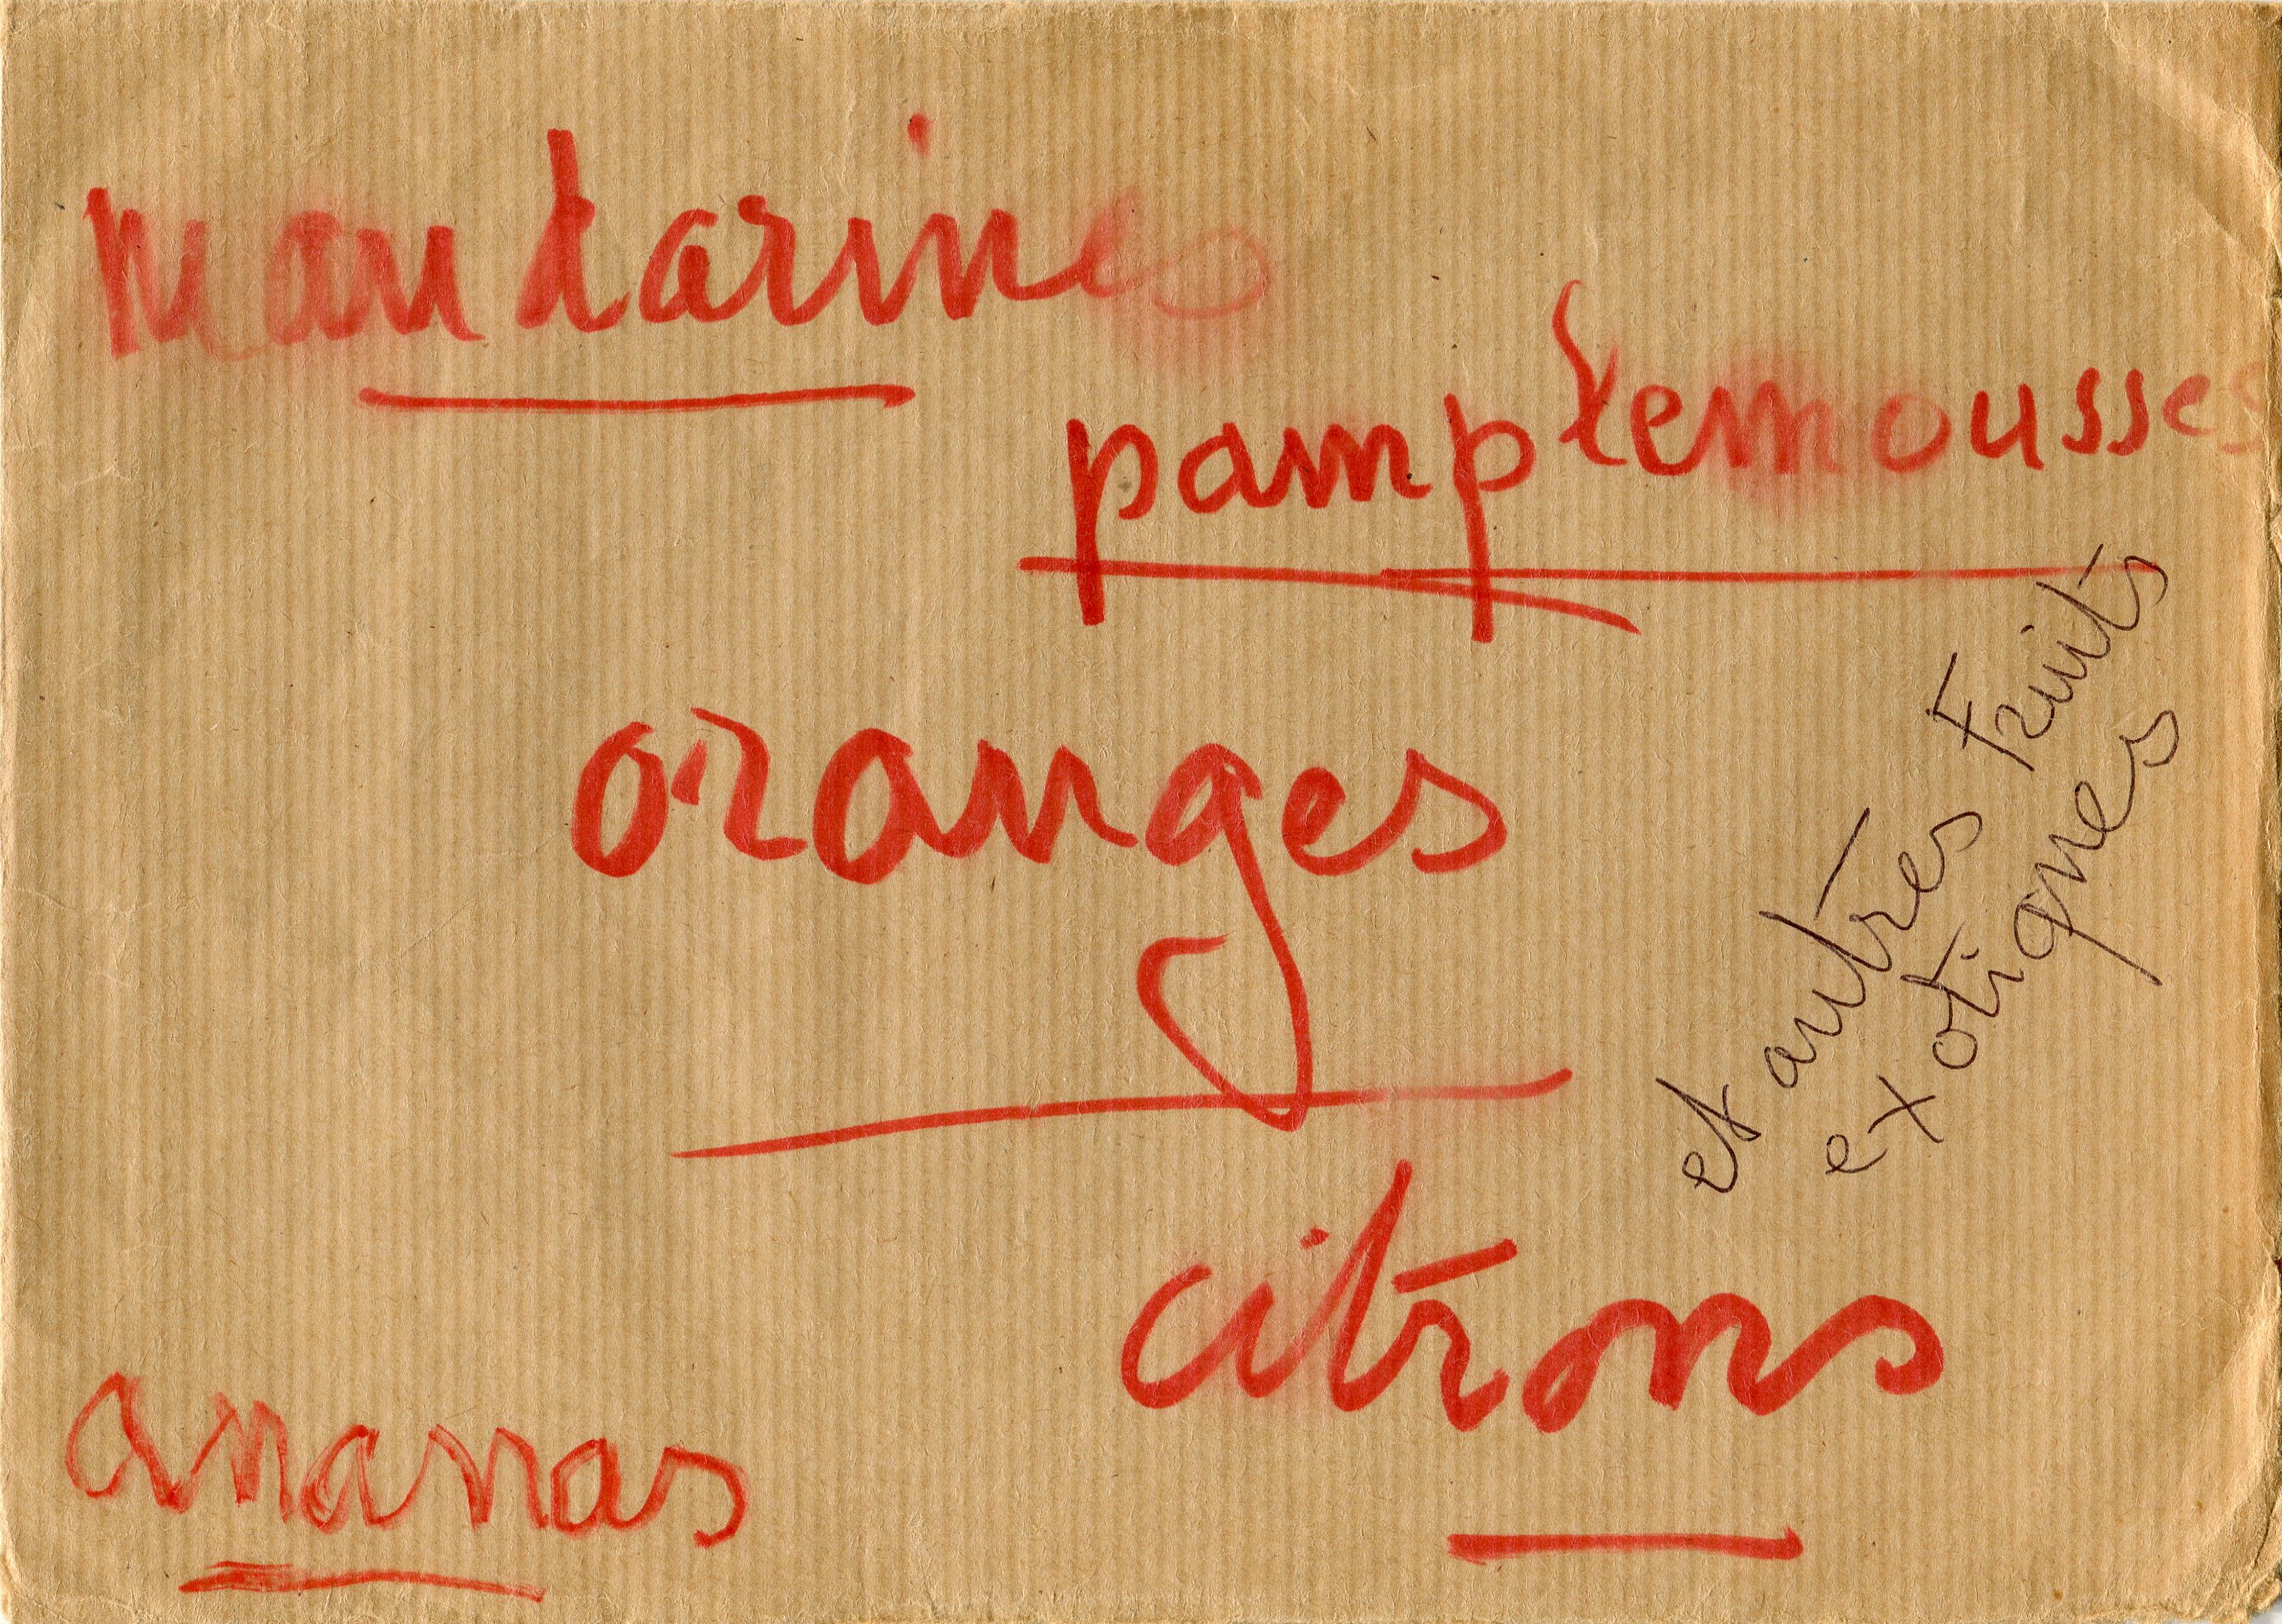 mandarines
pamplemousses
oranges
et autres Fruits
exotiques
citrons
ananas